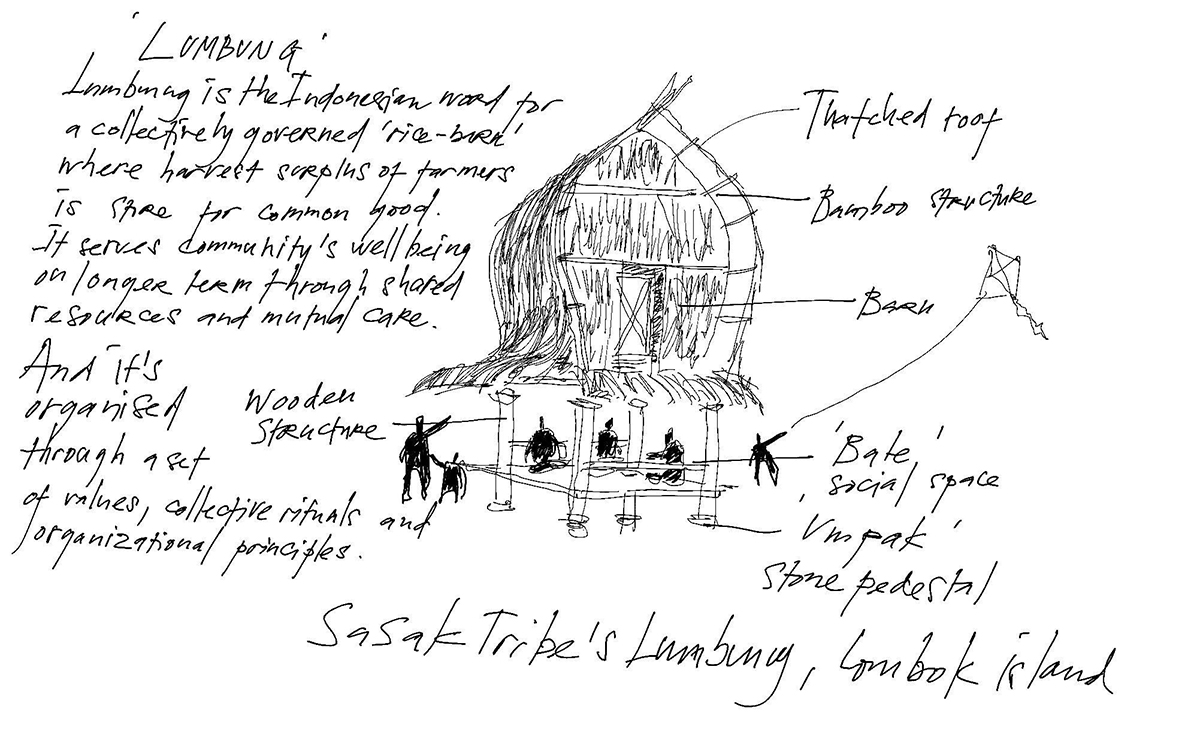 'LUMBUNG'
Lumbung is the Indonesian word for
a collectively governed 'rice-barn'
where harvest surplus of farmers
is store for common good.
It serves community's well being
on longer term through shared
resources and mutual care.
And it's
organised
through a set
of values, collective rituals and
organizational principles.
Thatched roof
Bamboo structure
Barn
Wooden
structure
'Bale'
social space
'Umpak'
stone pedestal
Sasak Tribe's Lumbung, Lombok island